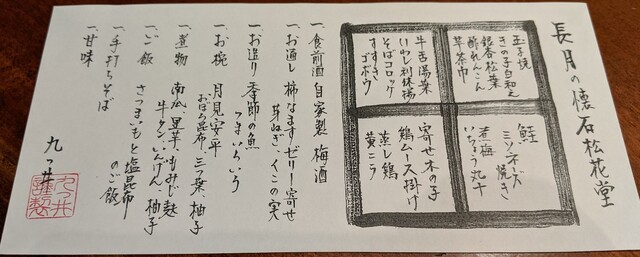 長月の懐石松花堂
玉子焼
きの子白和え
銀杏松葉
酢れんこん
芋茶巾
鮭
ミソネーズ焼き
若梅
いちょう丸十
牛舌湯葉
いわし利休揚
そばコロッケ
すすき
ゴボウ
寄せ木の子
鶏ムース掛け
蒸し鶏
黄こう
一、食前酒 自家製 梅酒
一、お通し 柿なますゼリー寄せ
芽ねぎ、くこの実
一、お造り 季節の魚
つまいろいろ
一、お椀 月見安平
おぼろ昆布、三つ葉、柚子
一、煮物 南瓜、里芋、もみじ麩
牛タン、いんげん、柚子
一、ご飯 さつまいもと塩昆布
のご飯
一、手打ちそば
一、甘味
九つ井